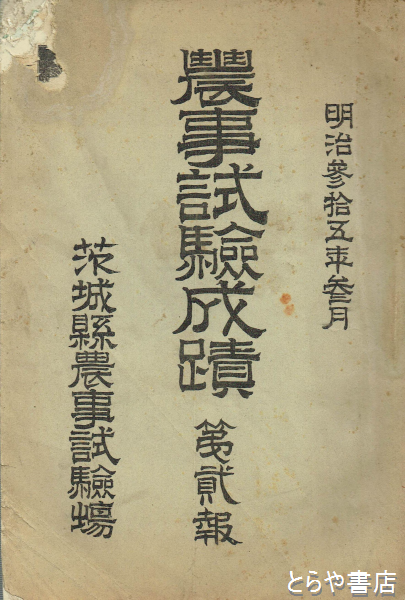 明治參拾五年參月
農事試驗成蹟 第貳報
茨城縣農事試驗場
とらや書店